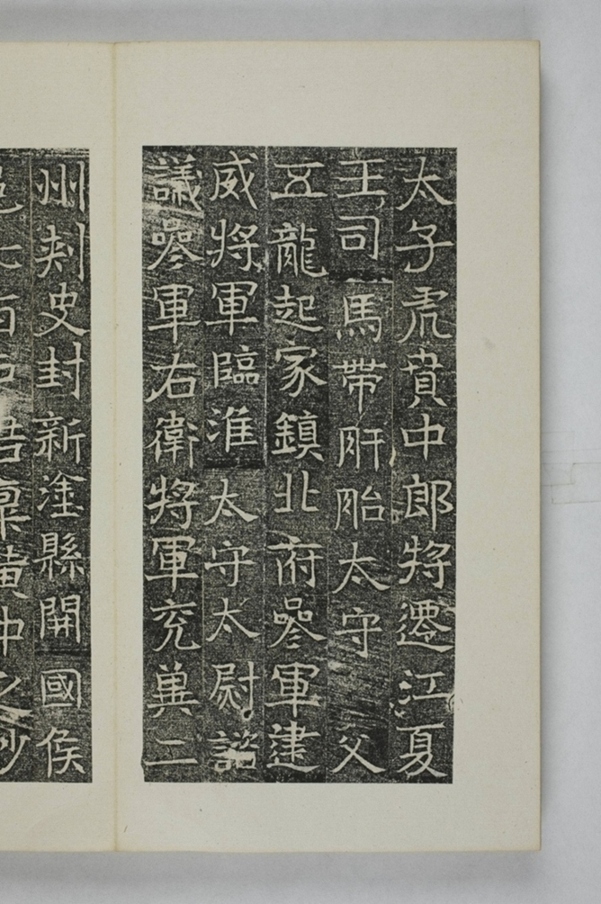 太子虎賁中郎將遷江夏
王司馬帶盱眙太守 父
五龍起家鎮北府參軍建
威將軍臨淮太守太尉諮
議參軍右衛將軍兗冀二
州刺史封新塗縣開國侯
邑七百戶君稟黃中之妙